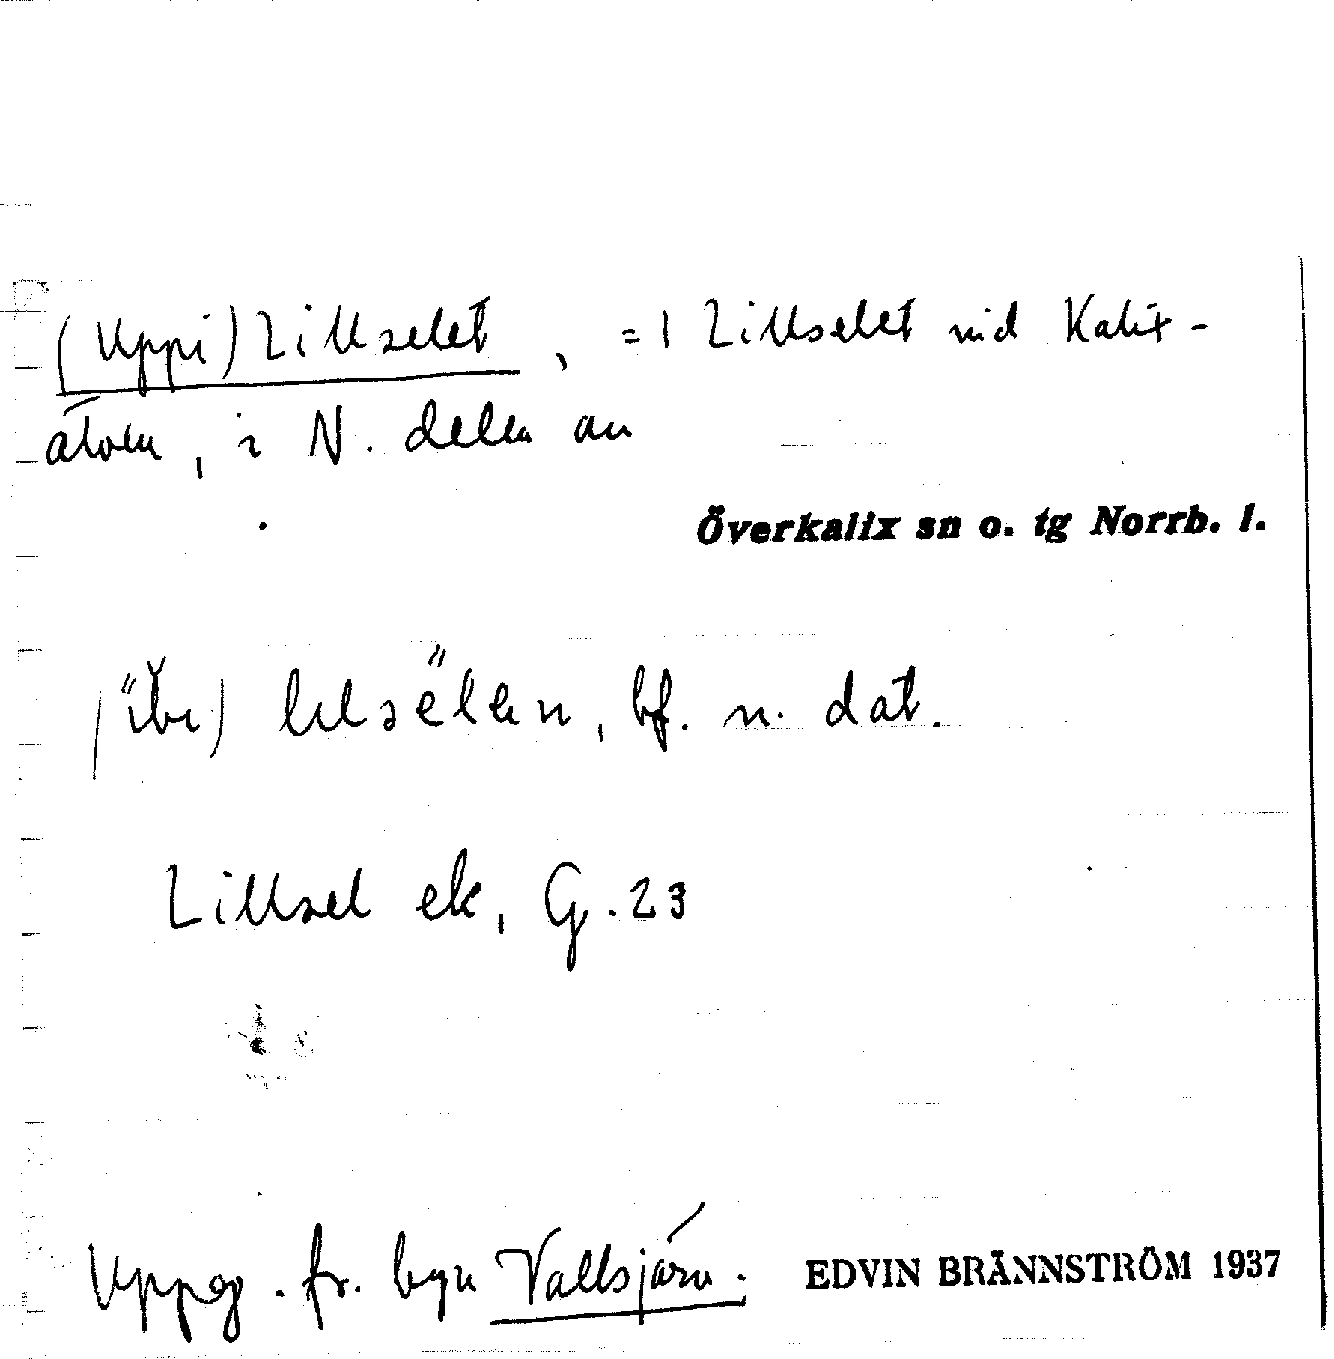 (Uppi) Lillselet, = 1 Lillselet vid Kalix-
älven, i N. delen av
Överkalix sn o. tg Norrb. l.
bf. n. dat.
Lillsel ek, G. 23
Uppg. fr. byn Vallsjärv.
EDVIN BRÄNNSTRÖM 1937